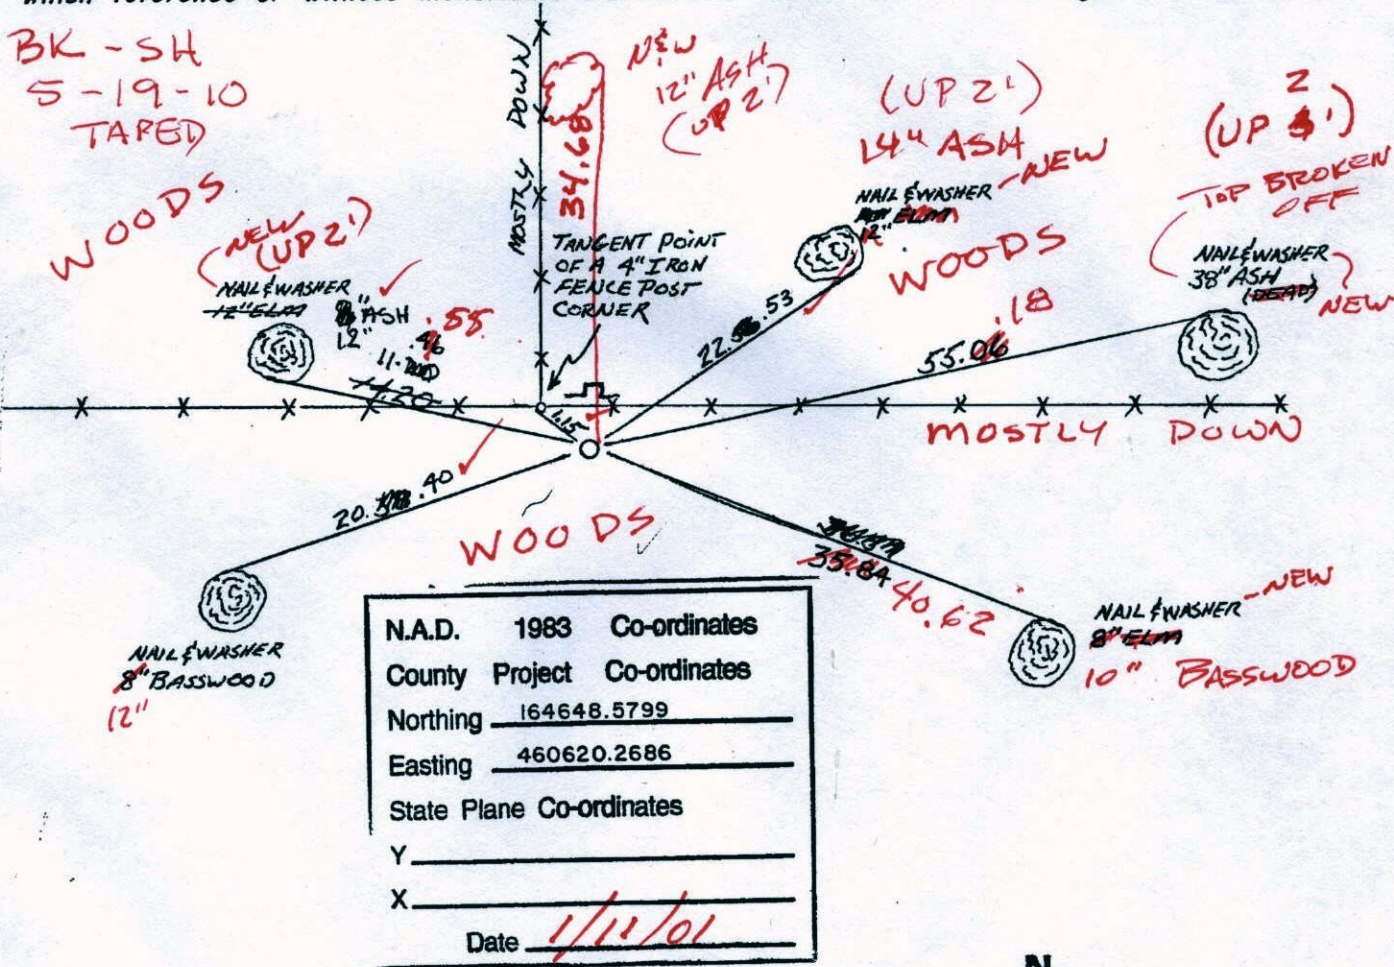 BK - SH
5-19-10
TAPED
WOODS
NEW
(UP 2')
NAIL & WASHER
12" ELM
" ASH
12"
.55
.46
11.
14.20
MOSTLY DOWN
34.68
N&W
12" ASH
(UP 2')
TANGENT POINT
OF A 4" IRON
FENCE POST
CORNER
(UP 2')
14" ASH
NEW
NAIL & WASHER
ELM
12"
WOODS
22. .53
2
(UP ')
TOP BROKEN
OFF
NAIL & WASHER
38" ASH
(DEAD)
NEW
55.06
.18
X X X X X X X X X X X X
MOSTLY DOWN
1.15
20. .40
WOODS
35.84
40.62
NAIL & WASHER
8" BASSWOOD
12"
NAIL & WASHER
NEW
8" ELM
10" BASSWOOD
N.A.D. 1983 Co-ordinates
County Project Co-ordinates
Northing 164648.5799
Easting 460620.2686
State Plane Co-ordinates
Y
X
Date 1/11/01
N